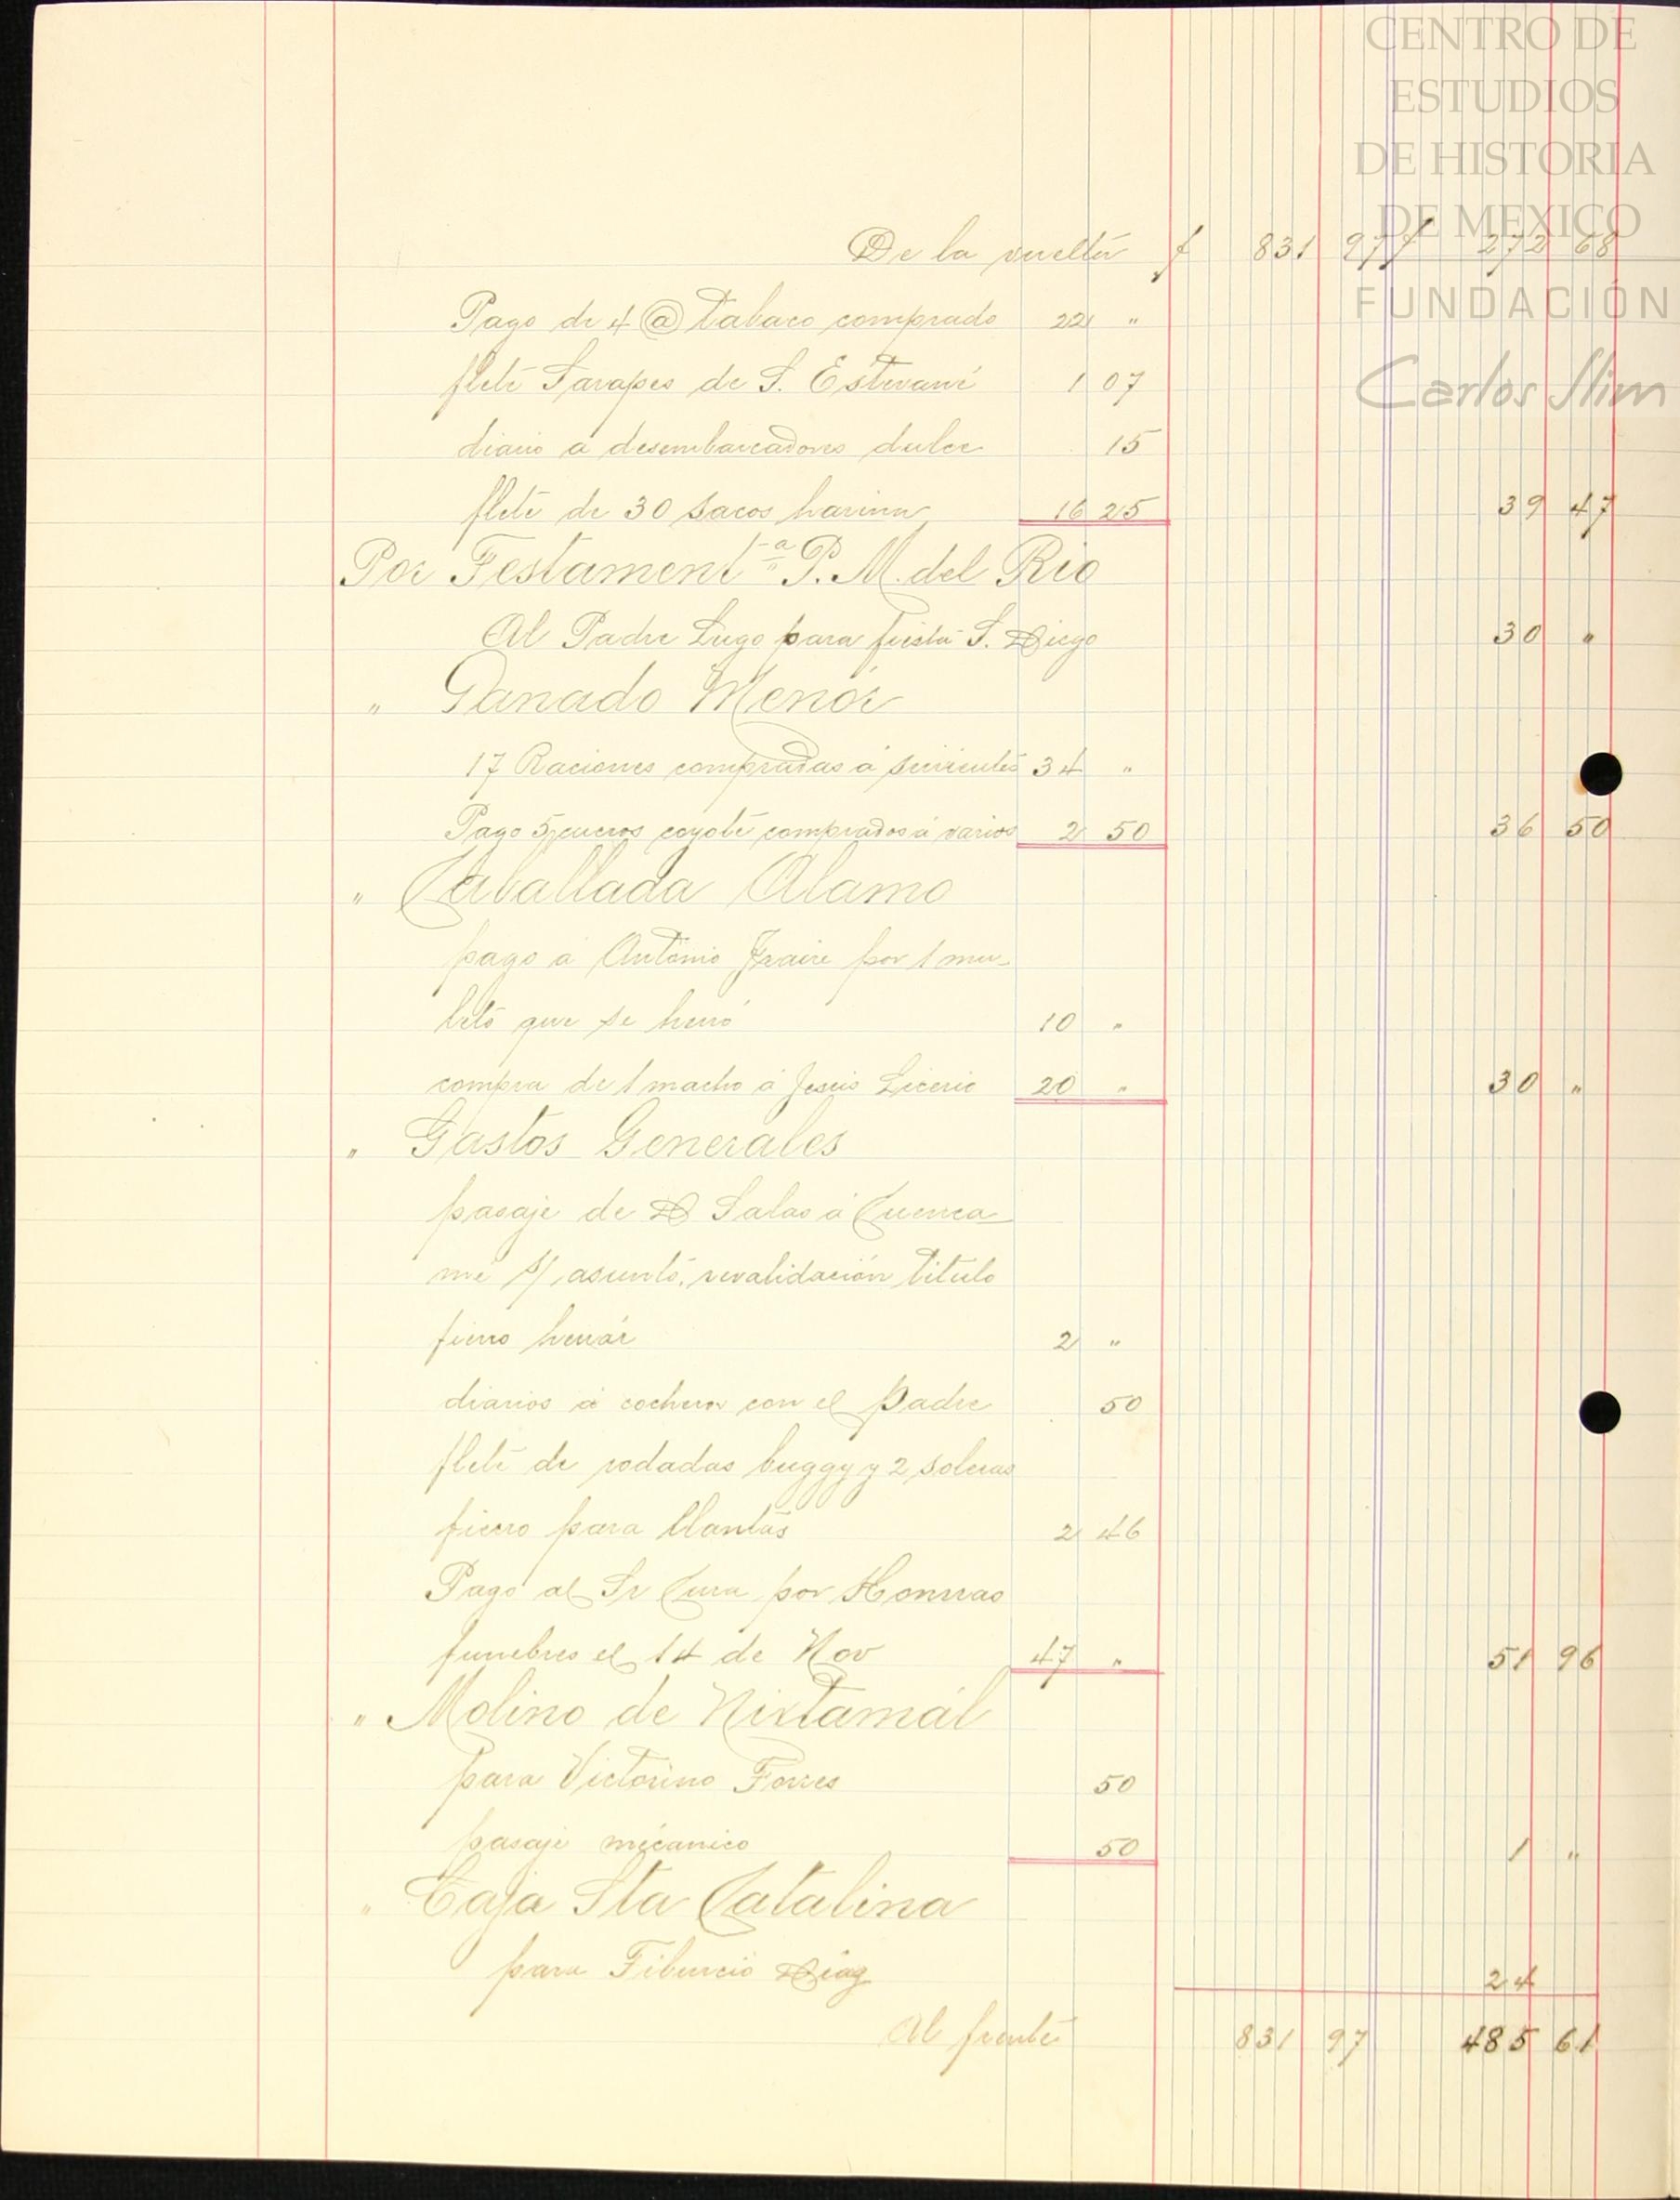 CENTRO DE
ESTUDIOS
DE HISTORIA
DE MEXICO
FUNDACIÓN
Carlos Slim
De la vuelta $ 831 97 $ 272 68
Pago de 4 @ tabaco comprado 22 "
flete Sarapes de S. Estevané 1 07
diario a desembarcadores dulce 15
flete de 30 sacos harina 16 25 39 47
Por Testament-a P. M. del Rio
Al Padre Lugo para fiesta S. Diego 30 "
" Ganado Menor
17 Raciones compradas á sirvientes 34 "
Pago 5 cueros coyote comprados á varios 2 50 36 50
" Caballada Alamo
pago á Antonio Fraire por 1 mu-
leto que se herró 10 "
compra de 1 macho á Jesús Licerio 20 " 30 "
" Gastos Generales
pasaje de D Salas á Cuenca
mé s/ asunto, revalidación titulo
fierro herrár 2 "
diarios á cochero con el padre 50
flete de rodadas buggy y 2 soleras
fierro para llantas 2 46
Pago al Sr Cura por Honrras
funebres el 14 de Nov 47 " 51 96
" Molino de Nixtamál
para Victorino Torres 50
pasaje mécanico 50 1 "
" Caja Sta Catalina
para Tiburcio Diaz 24
Al frente 831 97 485 61